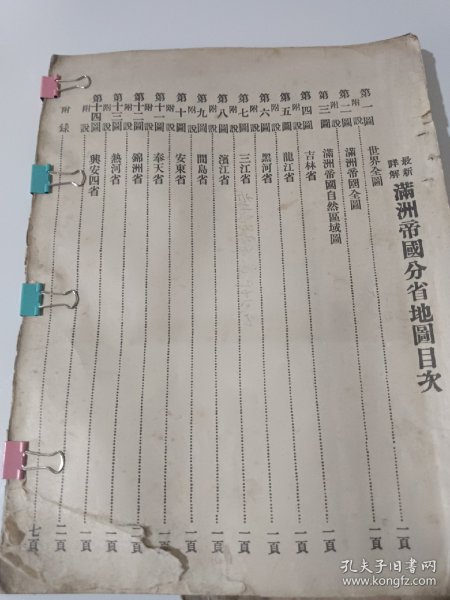 最新詳解 滿洲帝國分省地圖目次
第一圖 世界全圖 一頁
附說
第二圖 滿洲帝國全圖 一頁
附說
第三圖 滿洲帝國自然區域圖 一頁
附說
第四圖 吉林省 一頁
附說
第五圖 龍江省 一頁
附說
第六圖 黑河省 一頁
附說
第七圖 三江省 一頁
附說
第八圖 濱江省 一頁
附說
第九圖 間島省 一頁
附說
第十圖 安東省 一頁
附說
第十一圖 奉天省 一頁
附說
第十二圖 錦洲省 一頁
附說
第十三圖 熱河省 一頁
附說
第十四圖 興安四省 二頁
附說
附錄 七頁
孔夫子旧书网
www.kongfz.com